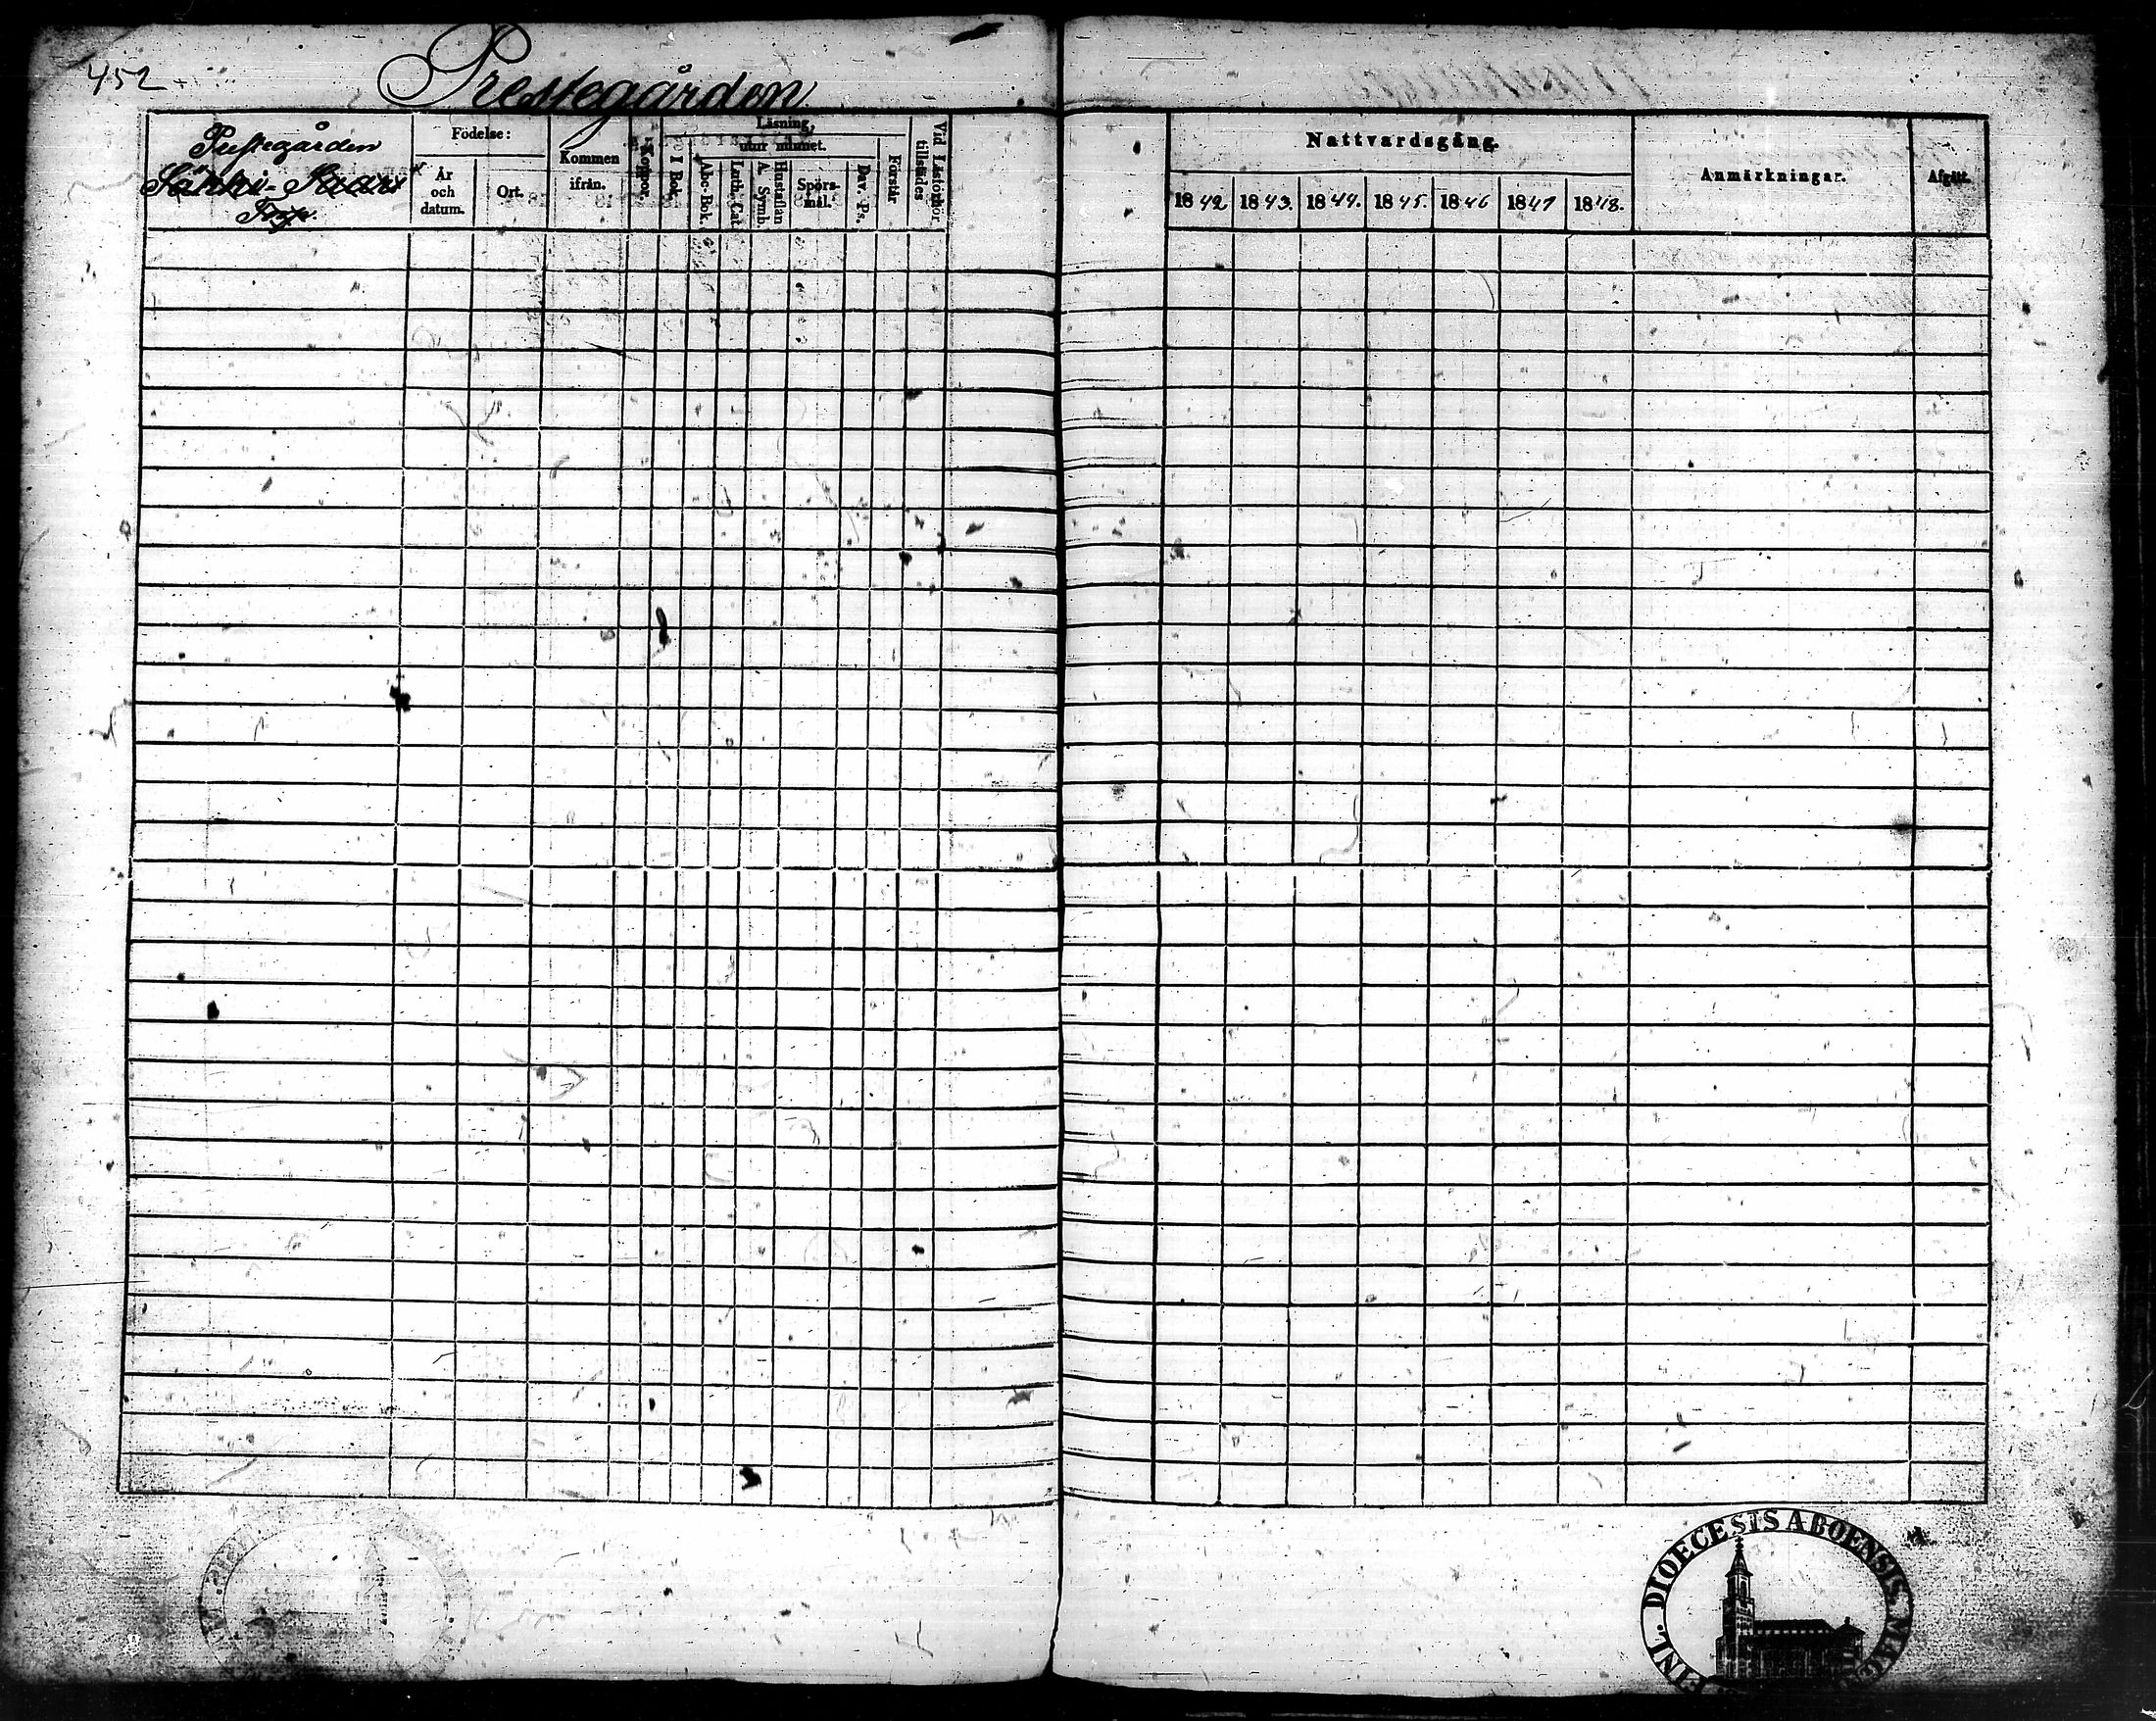 452
Prestegården
Prestegården
Torp.
Födelse:
År
och
datum.
Ort.
Kommen
ifrån.
Koppor.
Läsning,
utur minnet.
I Bok.
Abc-Bok.
Luth. Cat.
A. Symb.
Hustaflan
Spörs-
mål.
Dav. Ps.
Förstår
Vid Läsförhör
tillstädes
Nattvardsgång.
1842
1843.
1844.
1845.
1846
1847
1848.
Anmärkningar.
Afgått.
FINL. DIOECESIS ABOENSIS